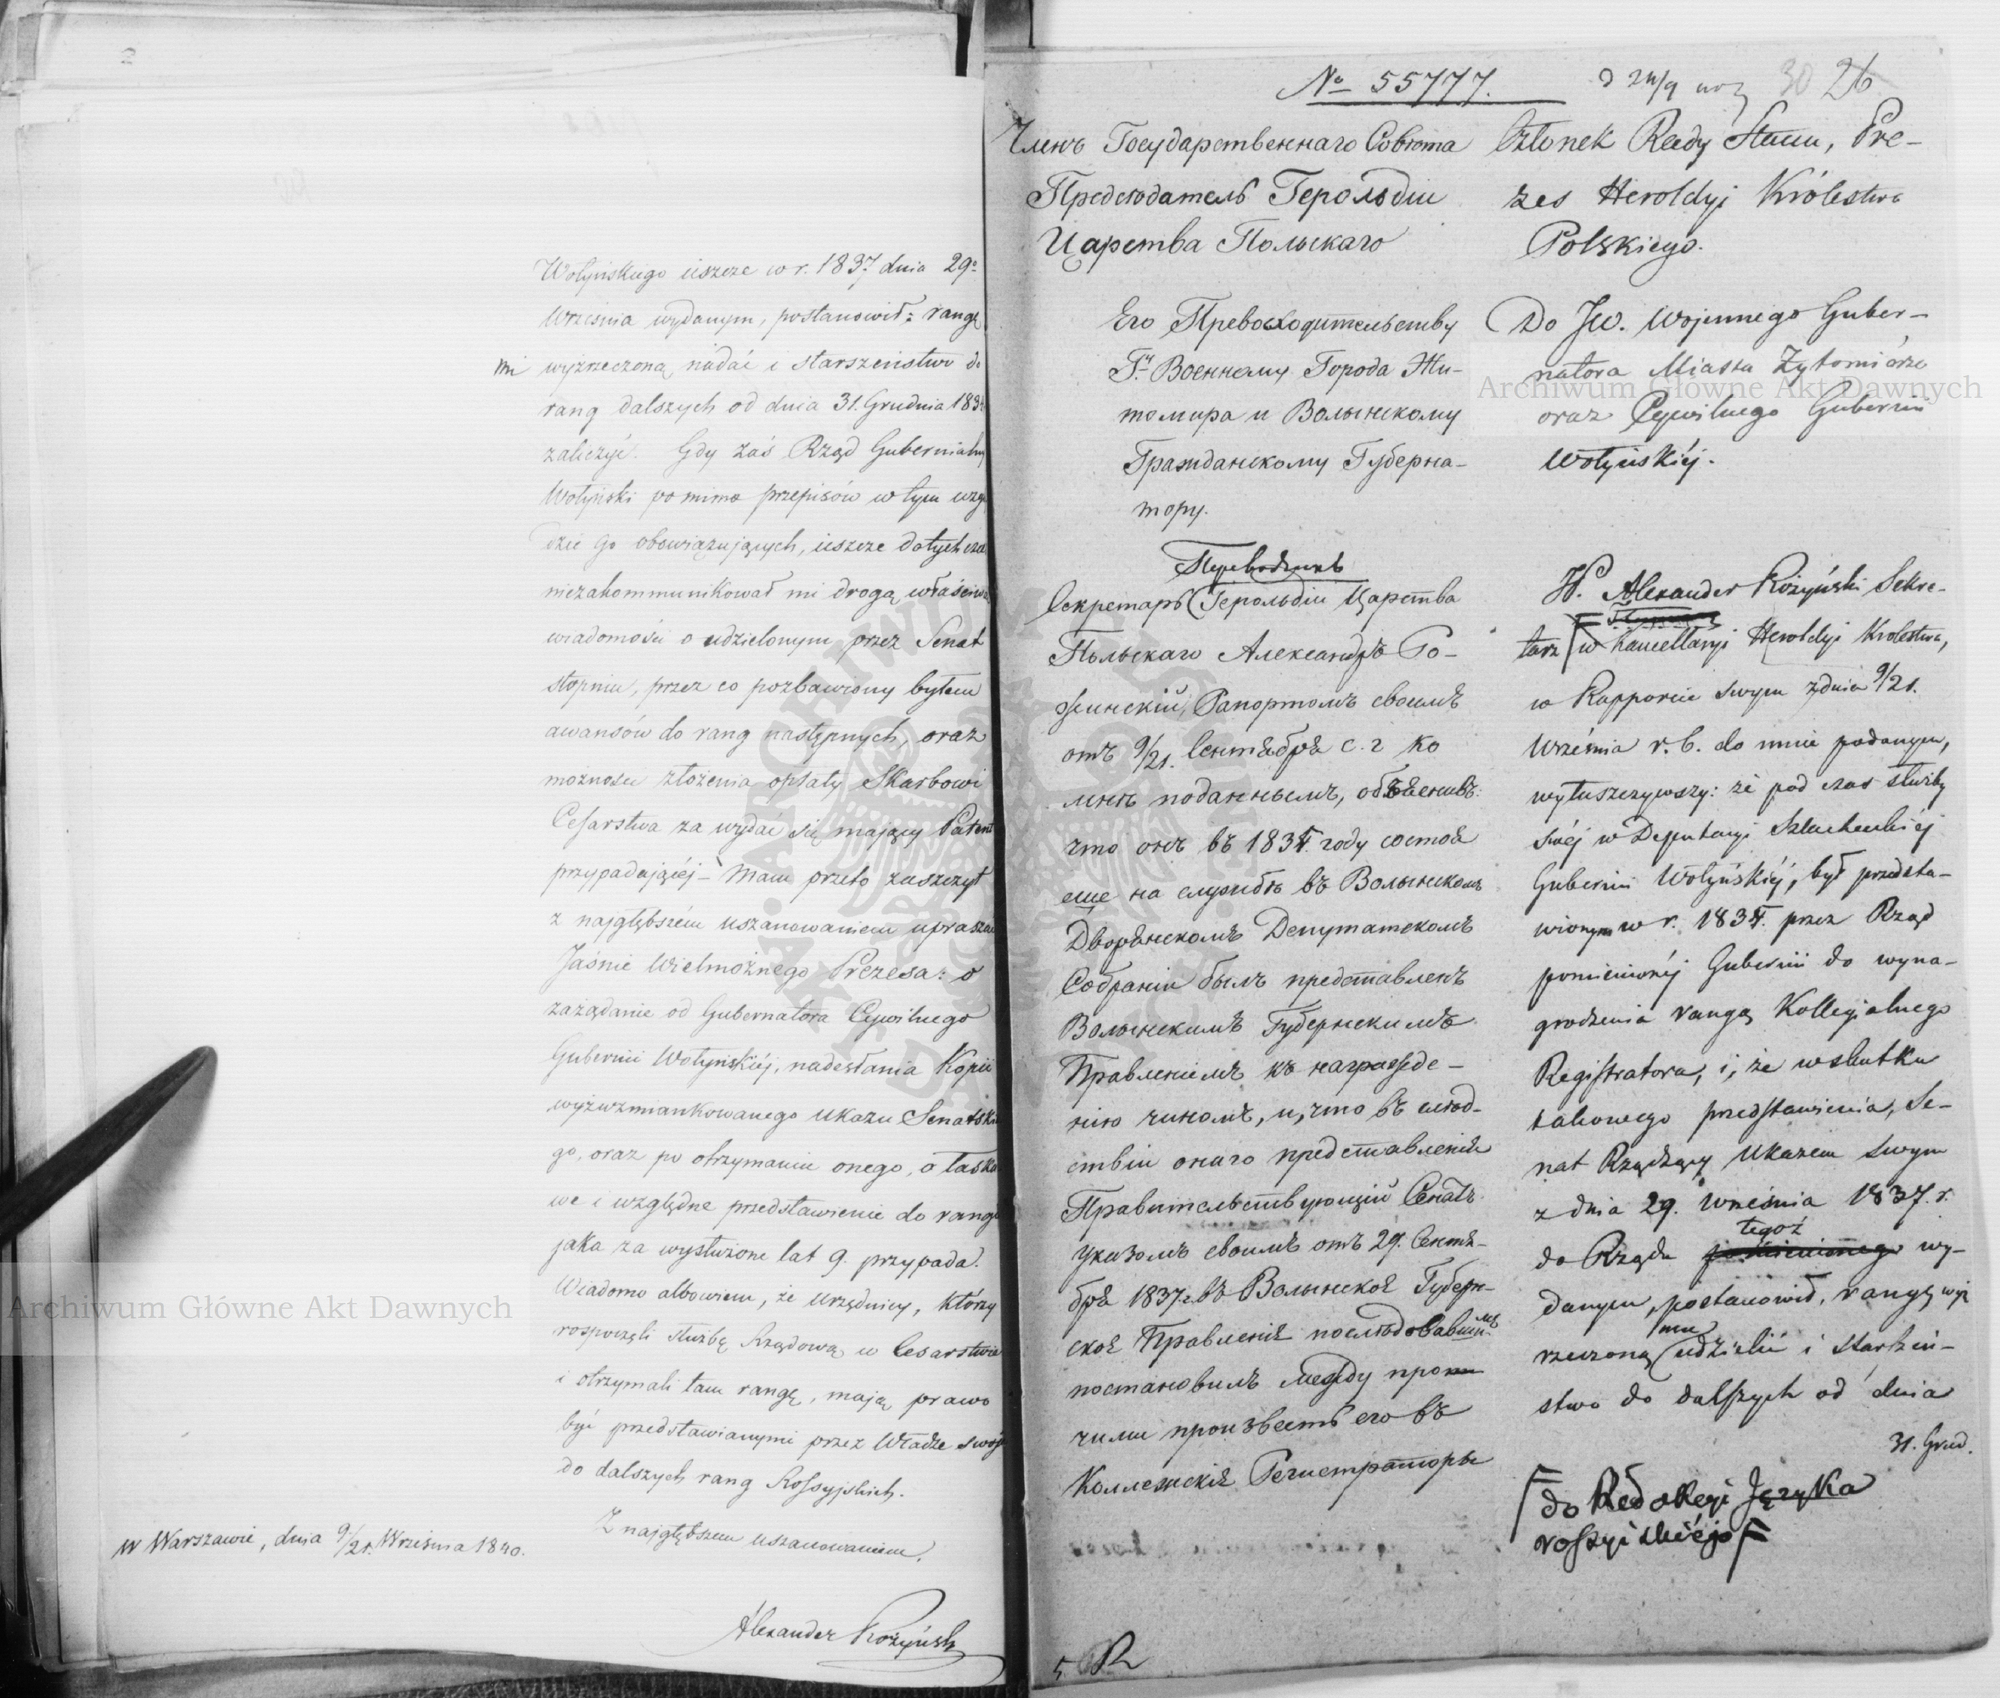 Wołyńskiego ieszcze w r. 1837 dnia 29º
Września wydanym, postanowił: rangę
mi wyżrzeczoną nadać i starszeństwo do
rang dalszych od dnia 31. Grudnia 183
zaliczyć. Gdy zaś Rząd Gubernialny
Wołyński pomimo przepisów w tym wzglę
dzie go obowiązujących, ieszcze dotychczas
niezakommunikował mi drogą właściwą
wiadomości o udzielonym przez Senat
stopniu, przez co pozbawiony byłem
awansów do rang następnych, oraz
możności złożenia opłaty Skarbowi
Cesarstwa za wydać się mający Patent
przypadającéj – Mam przeto zaszczyt
z najgłębszém uszanowaniem upraszać
Jaśnie Wielmożnego Prezesa: o
zażądanie od Gubernatora Cywilnego
Gubernii Wołyńskiéj, nadesłania Kopii
wyżwzmiankowanego Ukazu Senatskie
go, oraz po otrzymaniu onego, o łaska
we i względne przedstawienie do rangi
jaka za wysłużone lat 9. przypada.
Wiadomo albowiem, że Urzędnicy, którzy
rozpoczęli służbę Rządową w Cesarstwie
i otrzymali tam rangę, mają prawo
być przedstawianymi przez Władze swoje
do dalszych rang Rossyjskich.
Z najgłębszem uszanowaniem,
w Warszawie, dnia 9/21. Września 1840.
Alexander Rożyński
№ 55777.
30 26
Членъ Государственнаго Совѣта
Предсѣдатель Герольдіи
Царства Польскаго
Его Превосходительству
Гн. Военному Города Жи-
томира и Волынскому
Гражданскому Губерна-
тору.
Переводчикъ
Секретарь Герольдіи Царства
Польскаго Александръ Ро-
жинскій, Рапортомъ своимъ
отъ 9/21. Сентября с. г ко
мнѣ поданнымъ, объяснивъ:
что онъ въ 183 году состоя
еще на службѣ въ Волынскомъ
Дворянскомъ Депутатскомъ
Собраніи былъ представленъ
Волынскимъ Губернскимъ
Правленіемъ къ награжде-
нію чиномъ, и, что въ слѣд-
ствіи онаго представленія
Правительствующій Сенатъ
указомъ своимъ отъ 29. Сентя-
бря 1837 г. въ Волынское Губерн-
ское Правленіе послѣдовавшимъ
постановилъ между про
чими произвесть его въ
Коллежскіе Регистраторы
5. R
Członek Rady Stanu, Pre-
zes Heroldyi Królestwa
Polskiego.
Do JW. Wojennego Guber-
natora Miasta Żytomierza
oraz Cywilnego Gubernii
Wołyńskiéj.
W. Alexander Rożyński Sekre-
tarz w Kancellaryi Heroldyi Królestwa,
w Rapporcie swym z dnia 9/21.
Września r. b. do mnie podanym,
wyłuszczywszy: że pod czas służby
swéj w Deputacyi Szlacheckiej
Gubernii Wołyńskiéj, był przedsta-
wionym w r. 183 przez Rząd
pomienionéj Gubernii do wyna-
grodzenia rangą Kollegialnego
Registratora, i, że w skutku
takowego przedstawienia, Se-
nat Rządzący Ukazem swym
z dnia 29. Września 1837. r.
tegoż
do Rządu pomienionego wy-
danym, postanowił, rangę wyż
mu
rzeczoną udzielić i starszeń-
stwo do dalszych od dnia
31. Grud.
do Redakcyi Języka
rossyiskiégo
Archiwum Główne Akt Dawnych
Archiwum Główne Akt Dawnych